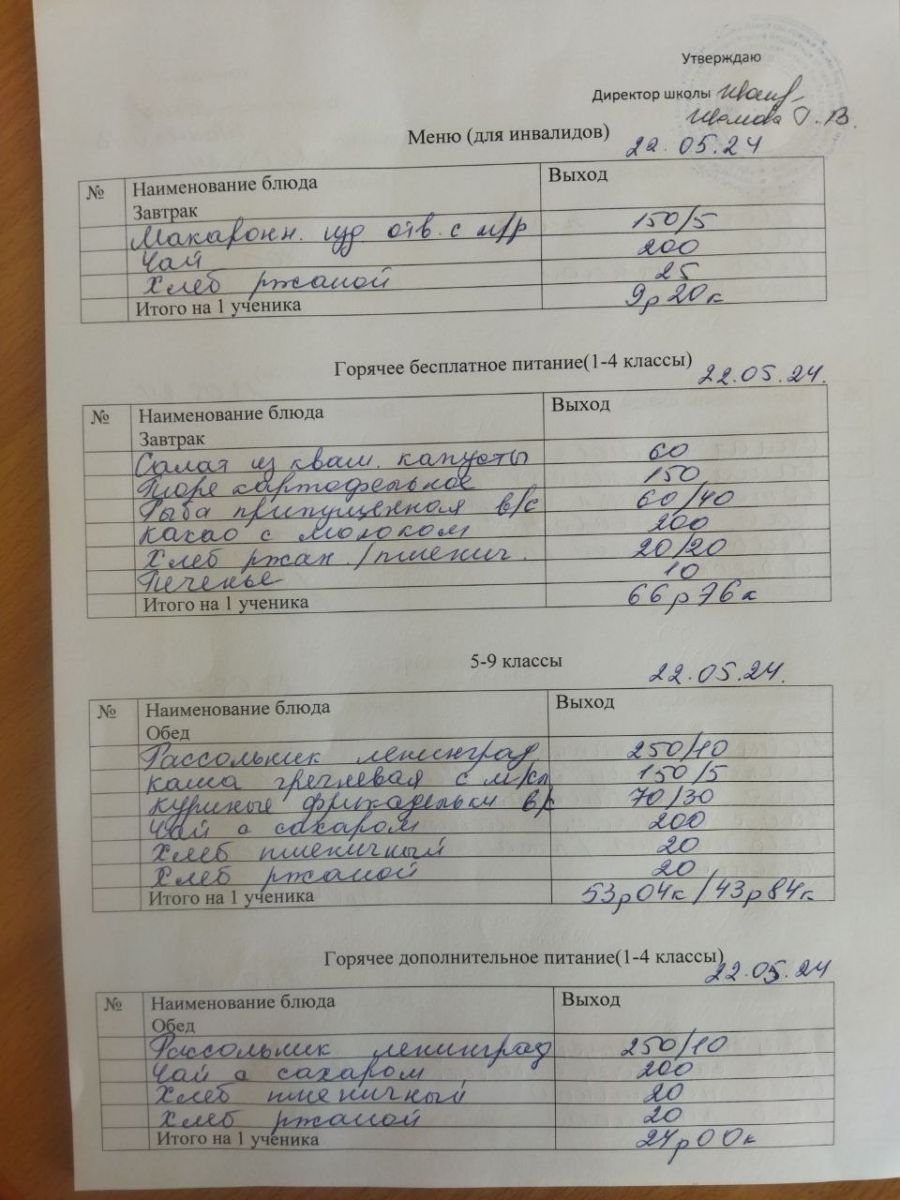 Утверждаю
Директор школы
Иванова О.В.
Меню (для инвалидов)
22.05.24
№ Наименование блюда Выход
Завтрак
Макаронн. изд. отв. с м/р 150/5
Чай 200
Хлеб ржаной 25
Итого на 1 ученика 9р 20к
Горячее бесплатное питание(1-4 классы) 22.05.24.
№ Наименование блюда Выход
Завтрак
Салат из кваш. капусты 60
Пюре картофельное 150
Рыба припущенная в/с 60/40
Какао с молоком 200
Хлеб ржан./пшенич. 20/20
Печенье 10
Итого на 1 ученика 66р 76к
5-9 классы 22.05.24.
№ Наименование блюда Выход
Обед
Рассольник ленинград 250/10
Каша гречневая с м/сл 150/5
Куриные фрикадельки в/с 70/30
Чай с сахаром 200
Хлеб пшеничный 20
Хлеб ржаной 20
Итого на 1 ученика 53р 04к / 43р 84к
Горячее дополнительное питание(1-4 классы)
22.05.24
№ Наименование блюда Выход
Обед
Рассольник ленинград 250/10
Чай с сахаром 200
Хлеб пшеничный 20
Хлеб ржаной 20
Итого на 1 ученика 24р 00к